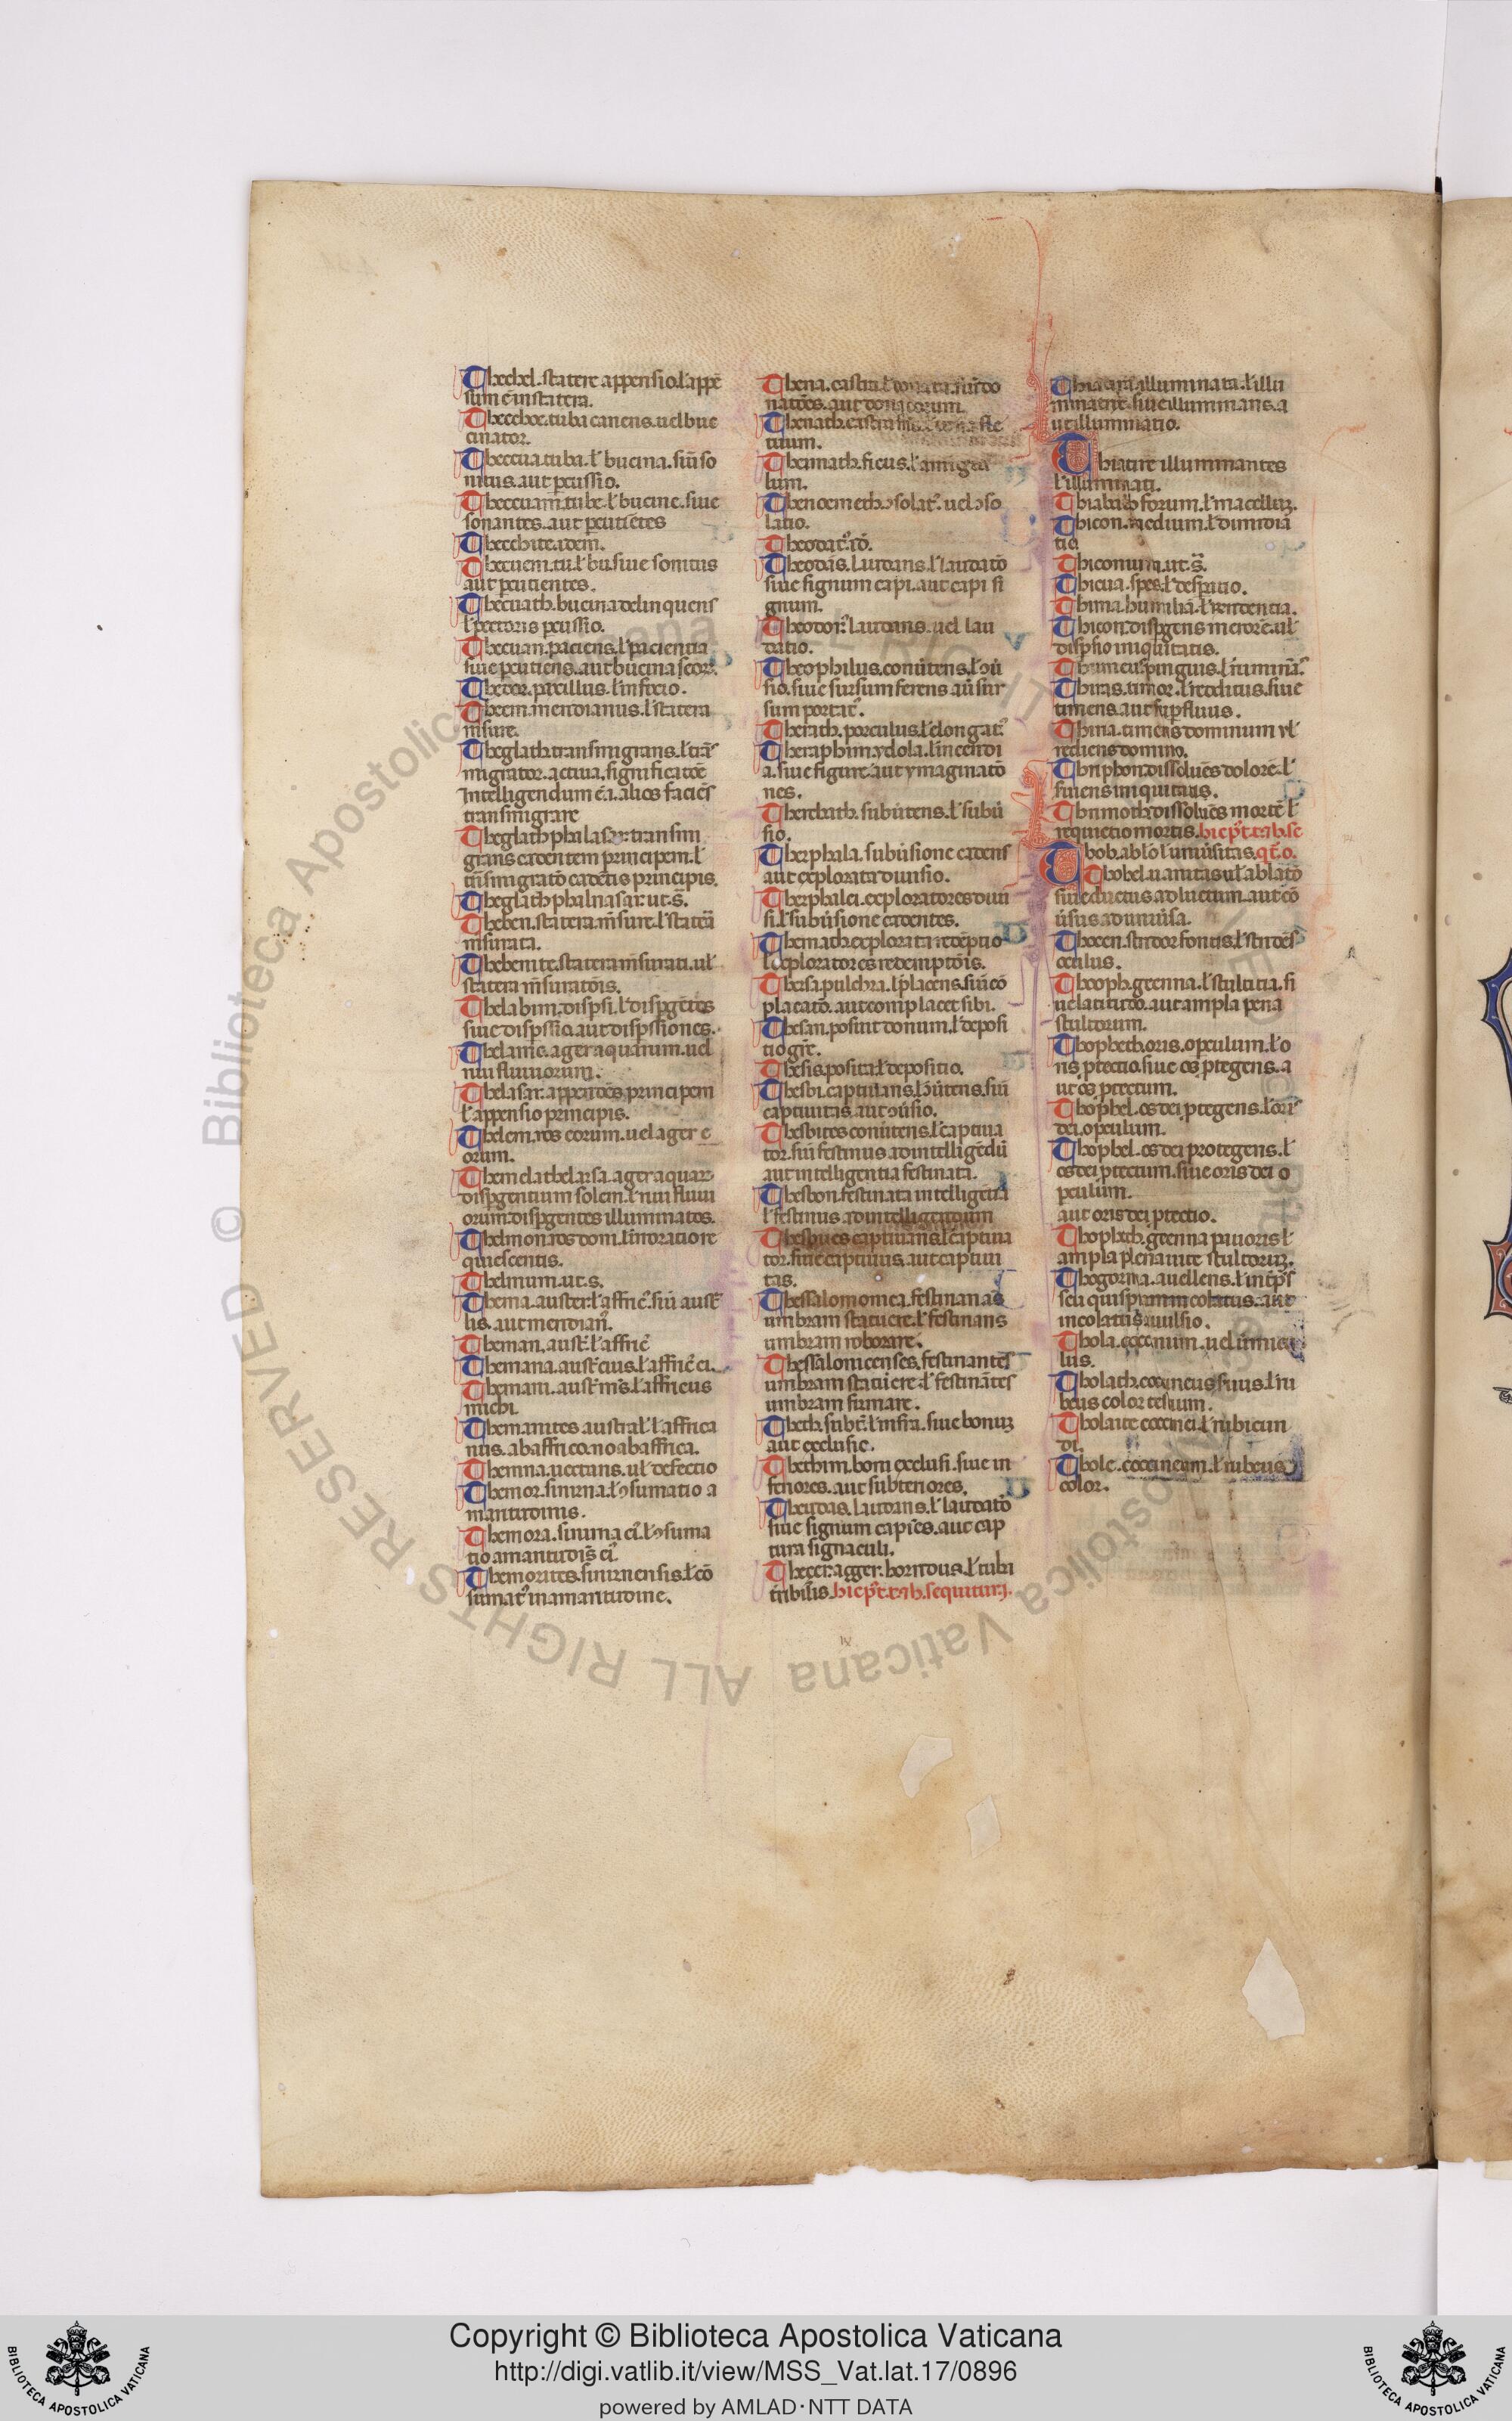 Thechel. statere appensio. ł appē
sum ē in statera.
Thecchoe. tuba canens. uel buc
cinator.
Theccua. tuba. ł bucina. siue so
nitus. aut pcussio.
Theccuam. tube. ł bucine. siue
sonantes. aut pcutiētes
Thecchite. idem.
Thecuem. tu. ł bu. siue sonitus
aut pcutientes.
Thecuath. bucina delinquens
ł pectoris pcussio.
Thecuan. paciens. ł paciencia
siue pcutiens. aut bucina
Thedor. paxillus. ł
Theem. meridianus. ł statera
msure.
Theglath. transmigrans. ł trās
migrator. actiua. significatōe
Intelligendum ē. i. alios faciēs
transmigrare
Theglath phalasar. transmi
grans cadentem principem. ł
trāsmigratō cadētis principis.
Theglath phalnasar. ut. s̄.
Thehen. statera msure. ł
msurata.
Thehenite. statera msurati. uł
statera msuratōis.
Thelabim. dispsi. ł dispgētes
siue dispsio. aut dispsiones.
Thelame. ager aquarum. uel
riui fluuiorum.
Thelasar. appendēs principem
ł appensio principis.
Thelem. ros eorum. uel ager e
orum.
ager aquar
dispgentium solem. ł riui fluui
orum. dispgentes illuminatos.
Thelmon. ros doni. ł
quiescentis.
Thelmum. ut. s.
Thema. auster. ł affric̄. siue aust̄
lis. aut meridian̄.
Theman. aust̄. ł affric̄
Themana. aust̄ eius. ł affric̄ ei.
Themani. aust̄ m̄s. ł affricus
michi.
Themanites. austral̄. ł affrica
nus. ab affrico. no ab affrica.
Themna. uetans. uł defectio
Themor. smirna. ł ꝯsumatio a
maritudinis.
Themora. smirna ei. ł ꝯsuma
tio amaritudis ei.
Themorites. smirnensis. ł cō
sumat in amaritudine.
Thena. castra. ł donata. siue do
natōes. aut donatorum.
Thenath. castra
tiuum.
Thennath. ficus. ł amigda
lum.
Thenoemeth. ꝯsolat̄. uel ꝯso
latio.
Theodat. id.
Theodas. laudans. ł laudatō
siue signum capi. aut capi si
gnum.
Theodor. laudans. uel lau
datio.
Theophilus. conūtens. ł ꝯū
sio. siue sursum ferens. aut sur
sum portat̄.
Therath. porculus. ł elongat̄.
Theraphim. ydola. ł incendi
a. siue figure. aut ymaginatō
nes.
Therchath. subūtens. ł subū
sio.
Therphala. subūsione cadens
aut explorata diuisio.
Therphalei. exploratores diui
si. ł subūsione cadentes.
Themath. explorata redēptio
ł exploratores redemptōis.
Thersa. pulchra. ł placens. siue cō
placatō. aut complacet sibi.
Thesan. posuit donum. ł deposi
tio
Thesis. posita. ł depositio.
Thesbi. captiuans. ł ꝯūtens. siue
captiuitas. aut ꝯūsio.
Thesbites. conūtens. ł captiua
tor. siue festinus ad intelligēdū
aut intelligentia festinata.
Thesbon. festinata intelligētia
ł festinus ad intelligendum
Thesbues. captiuans. ł captiua
tor. siue captiuus. aut captiui
tas.
Thessalonica. festinanas
umbram statuere. ł festinans
umbram roborare.
Thessalonicenses. festinantes
umbram statuere. ł festināntes
umbram firmare.
Theth. subt̄. ł infra. siue bonū
aut exclusio.
Thethim. boni exclusi. siue in
feriores. aut subteriores.
Theudas. laudans. ł laudatō
siue signum capiēs. aut cap
tura signaculi.
Thecer. agger. horridus. ł turbi
tribilis. hic pr̄t. rab. sequitur. j.
Thiatira. illuminata. ł illu
minatrix. siue illuminans. a
ut illuminatio.
Thiatire. illuminantes
ł illuminati.
forum. ł macellum.
Thicon. medium. ł dimidia
tio.
Thiconum. ut. s̄.
Thicua. spes. ł despatio.
Thima. humilia. ł
Thicon. dispgens merorē. uł
dispsio iniquitatis.
pinguis. ł
Thiras. timor. ł reditus. siue
timens. aut supfluus.
Thiria. timens dominum. uł
rediens domino.
Thriphon. dissoluēs dolorē. ł
finiens iniquitatis.
Thrimoth. dissoluēs mortē. ł
requietio mortis. hic pr̄t. rab. se
Thob. ablō. ł uniūsitas. qt̄. o.
Thobel. uanitas. uł ablatō
siue ductus ad luctum. aut cō
ūsus ad uniūsa.
Thocen. stridor fontis. ł stridēs
oculus.
Thooph. geenna. ł stultitia. si
ue latitudo. aut ampla pena
stultorum.
Thophech. oris. opculum. ł o
ris ptectio. siue os ptegens. a
ut os ptectum.
Thophel. os dei ptegens. ł ori
dei opculum.
Thophel. os dei protegens. ł
os dei ptectum. siue oris dei o
pculum.
aut oris dei ptectio.
Thopheth. geenna pauoris. ł
ampla plenaitate stultorum.
Thogorma. auellens. ł
seu quispiam incolatus. aut
incolatus auulsio.
Thola. coccinum. uel umicu
lus.
Tholath. coccineus suus. ł ru
beus color
Tholaite. coccinei. ł rubicun
di.
Thole. coccineam. ł rubeus
color.
Copyright © Biblioteca Apostolica Vaticana
http://digi.vatlib.it/view/MSS_Vat.lat.17/0896
powered by AMLAD·NTT DATA
BIBLIOTECA APOSTOLICA VATICANA
BIBLIOTECA APOSTOLICA VATICANA
© Biblioteca Apostolica Vaticana ALL RIGHTS RESERVED